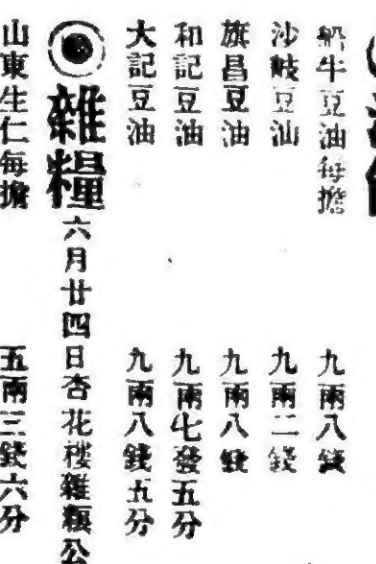 船牛豆油每擔 九兩八錢
沙岐豆油 九兩二錢
旗昌豆油 九兩八錢
和記豆油 九兩七錢五分
大記豆油 九兩八錢五分
雜糧 六月廿四日杏花樓雜糧公
山東生仁每擔 五兩三錢六分